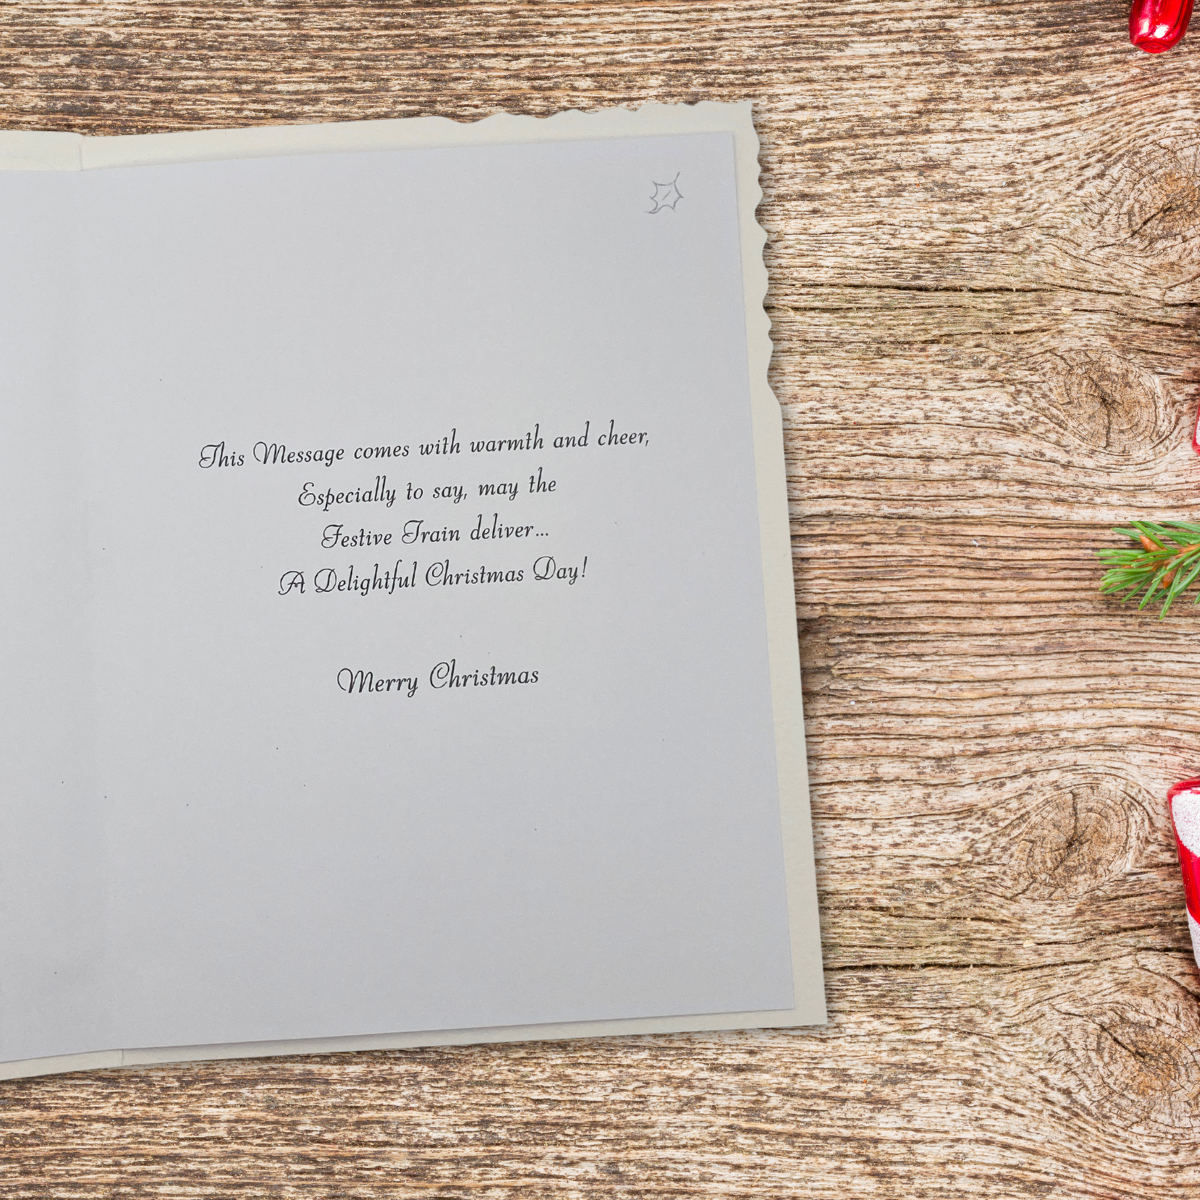 This Message comes with warmth and cheer,
Especially to say, may the
Festive Train deliver...
A Delightful Christmas Day!
Merry Christmas